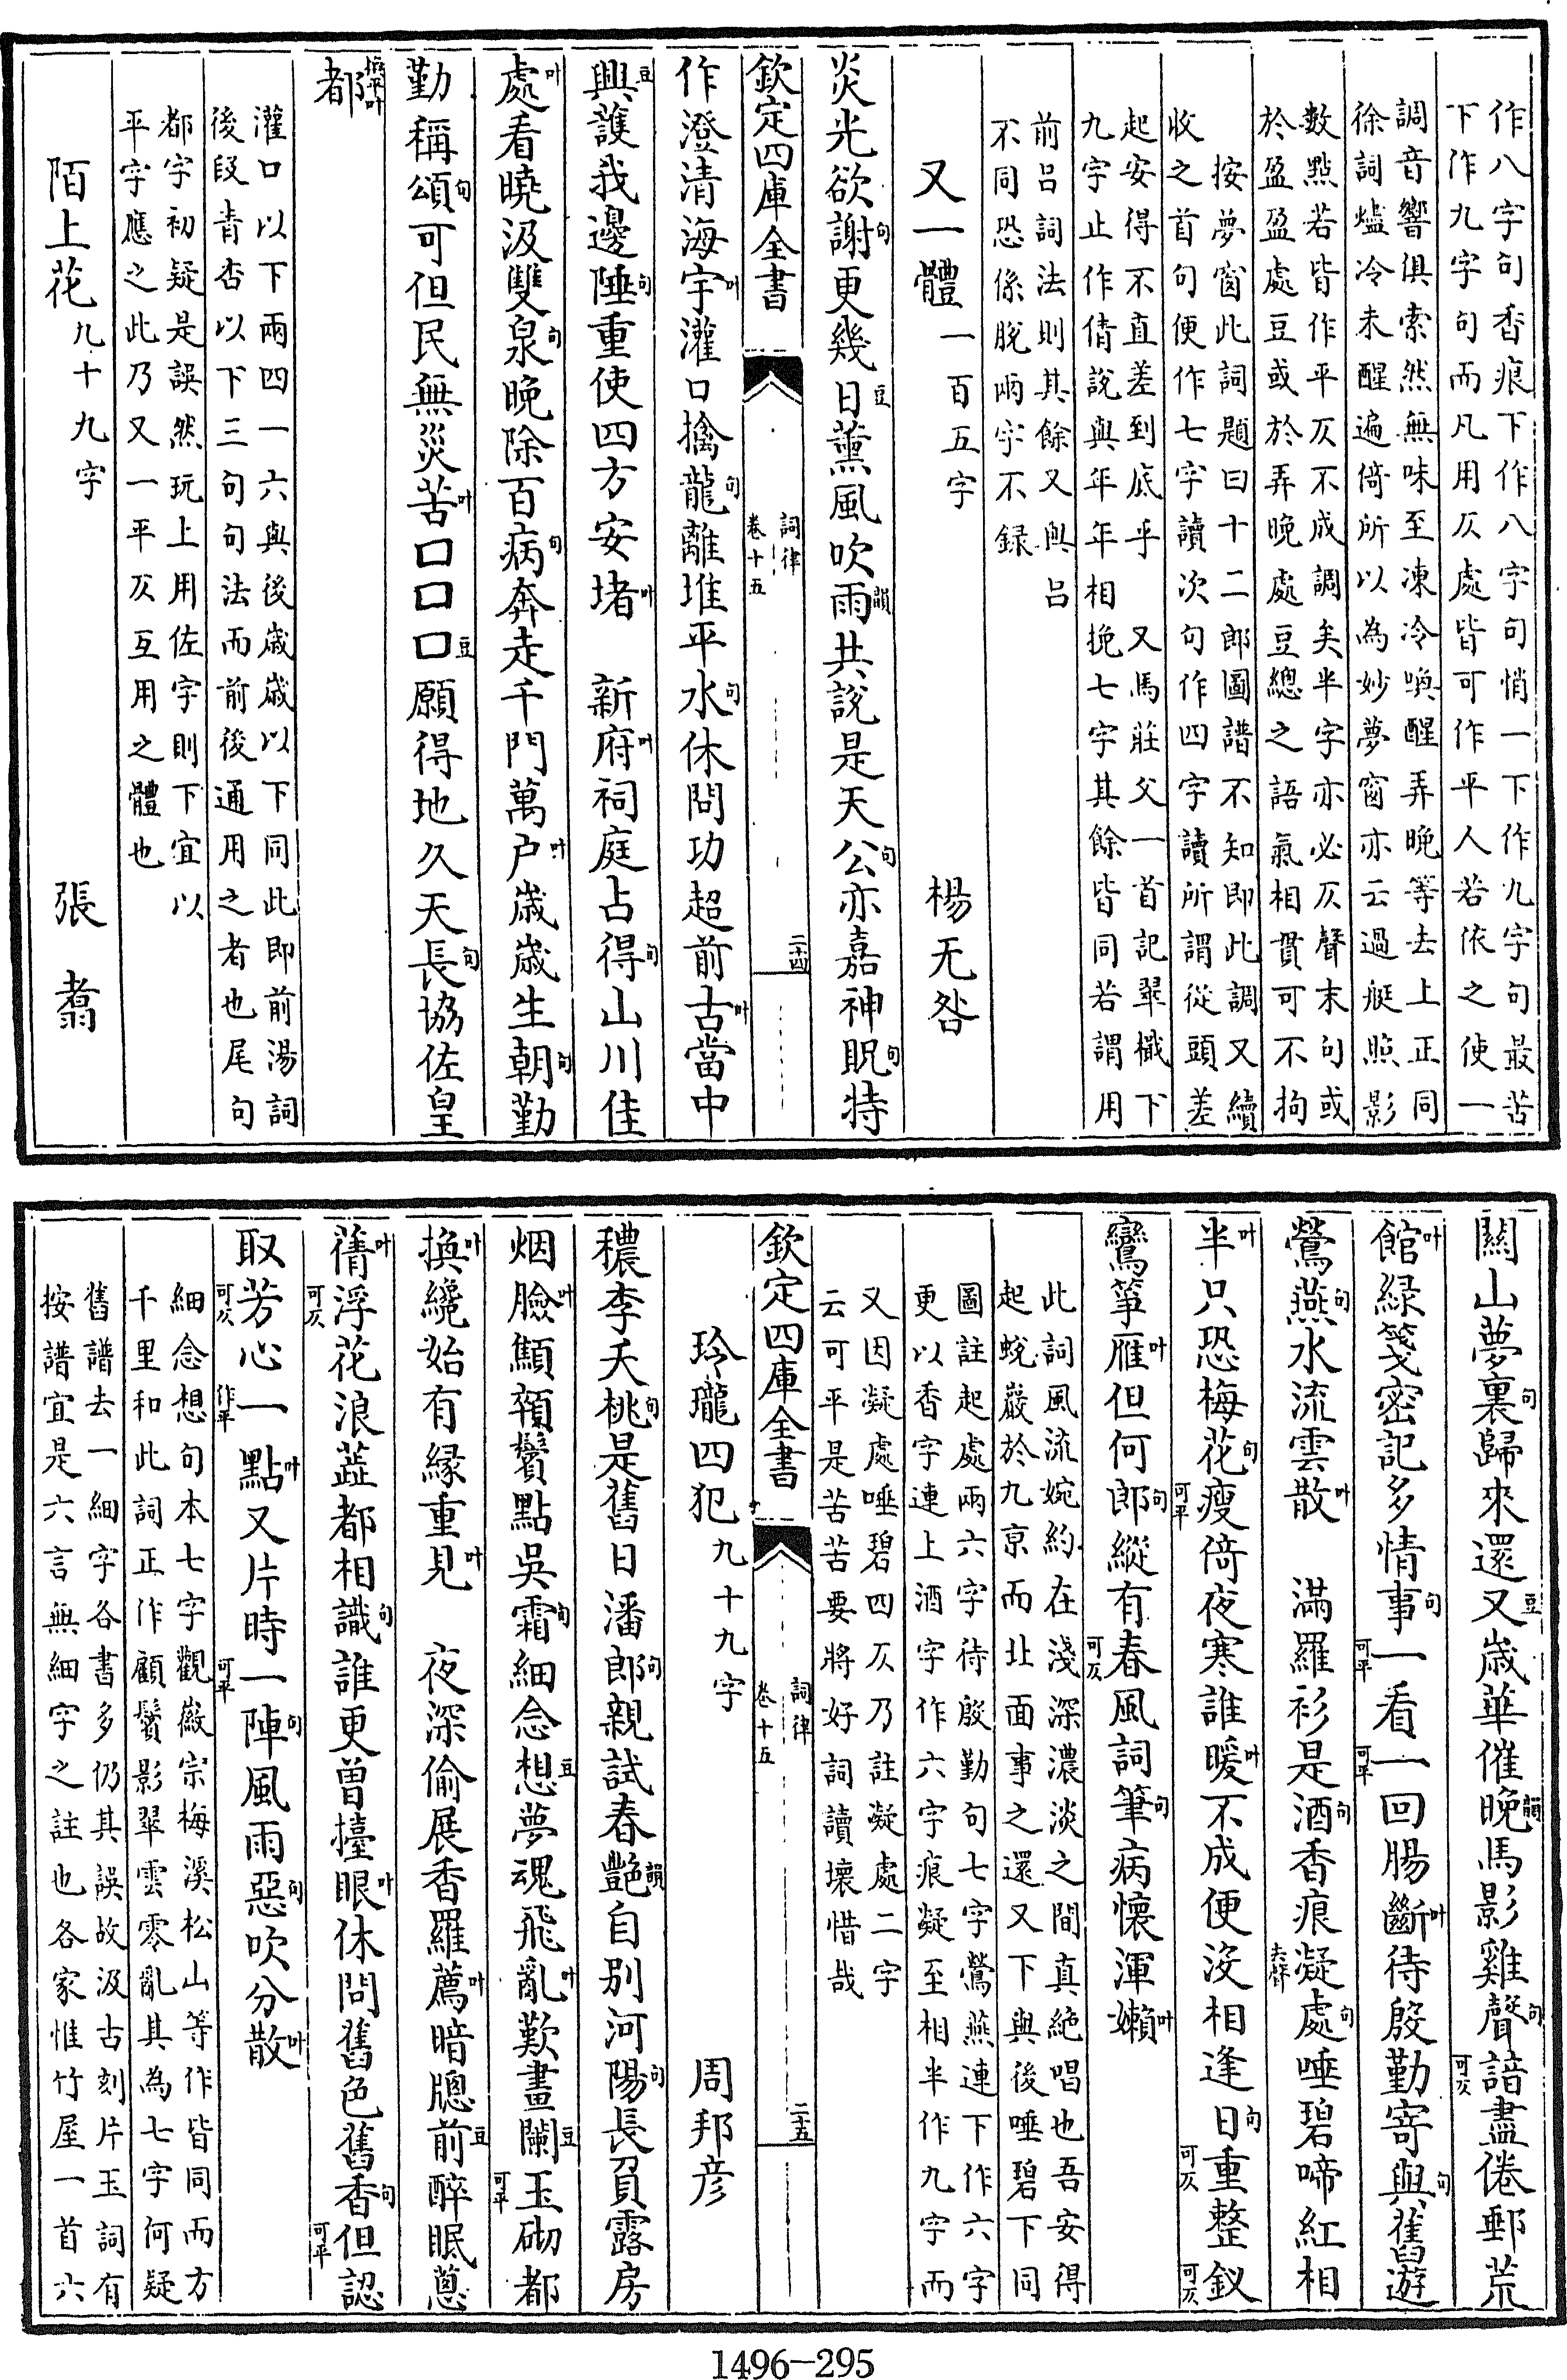 作八字句香痕下作八字句悄一下作九字句最苦
下作九字句而凡用仄處皆可作平人若依之使一
調音響俱索然無味至凍冷喚醒弄晚等去上正同
徐詞爐冷未醒遍倚所以為妙夢窗亦云過艇照影
數點若皆作平仄不成調矣半字亦必仄聲末句或
於盈盈處豆或於弄晚處豆總之語氣相貫可不拘
按夢窗此詞題曰十二郎圖譜不知即此調又續
收之首句便作七字讀次句作四字讀所謂從頭差
起安得不直差到底乎　又馬莊父一首記翠檝下
九字止作倩說與年年相挽七字其餘皆同若謂用
前呂詞法則其餘又與呂
不同恐係脫兩字不錄
又一體一百五字　楊无咎
炎光欲謝句更幾日豆薰風吹雨韻共說是天公句亦嘉神貺句特
欽定四庫全書　詞律　卷十五　二十四
作澄清海宇叶灌口擒龍句離堆平水句休問功超前古叶當中
興豆護我邊陲句重使四方安堵叶　新府叶祠庭占得句山川佳
處叶看曉汲雙泉句晚除百病句奔走千門萬户叶歲歲生朝句勤
勤稱頌句可但民無災苦叶口口口豆願得地久天長句協佐皇
都換平叶
灌口以下兩四一六與後歲歲以下同此即前湯詞
後段青杏以下三句句法而前後通用之者也尾句
都字初疑是誤然玩上用佐字則下宜以
平字應之此乃又一平仄互用之體也
陌上花九十九字　張翥
關山夢裏句歸來還又豆歲華催晚韻馬影雞聲句諳可仄盡倦郵荒
館叶緑箋密記多情事句一可平看一可平回腸斷叶待殷勤寄與句舊遊
鶯燕句水流雲散叶　滿羅衫是酒句香痕凝去聲處句唾碧啼紅相
半叶只恐梅花句瘦可平倚夜寒誰暖叶不成便沒相逢日句重可仄整釵可仄
鸞箏雁叶但何郎句縱有春可仄風詞筆句病懷渾嬾叶
此詞風流婉約在淺深濃淡之間真絶唱也吾安得
起蛻巖於九京而北面事之還又下與後唾碧下同
圖註起處兩六字待殷勤句七字鶯燕連下作六字
更以香字連上酒字作六字痕凝至相半作九字而
又因凝處唾碧四仄乃註凝處二字
云可平是苦苦要將好詞讀壞惜哉
欽定四庫全書　詞律　卷十五　二十五
玲瓏四犯九十九字　周邦彦
穠李夭桃句是舊日潘郎句親試春艷韻自別河陽句長負露房
烟臉叶顦顇鬢點吳霜句細念想豆夢魂飛亂叶歎畫闌豆玉可平砌都
換叶纔始有緣重見叶　夜深偷展香羅薦叶暗牕前豆醉眠蔥
蒨叶浮可仄花浪蘂都相識句誰更曾擡眼叶休問舊色舊香句但可平認
取芳可仄心一作平點叶又片時一可平陣句風雨惡句吹分散叶
細念想句本七字觀徽宗梅溪松山等作皆同而方
千里和此詞正作顧鬢影翠雲零亂其為七字何疑
舊譜去一細字各書多仍其誤故汲古刻片玉詞有
按譜宜是六言無細字之註也各家惟竹屋一首六
1496-295